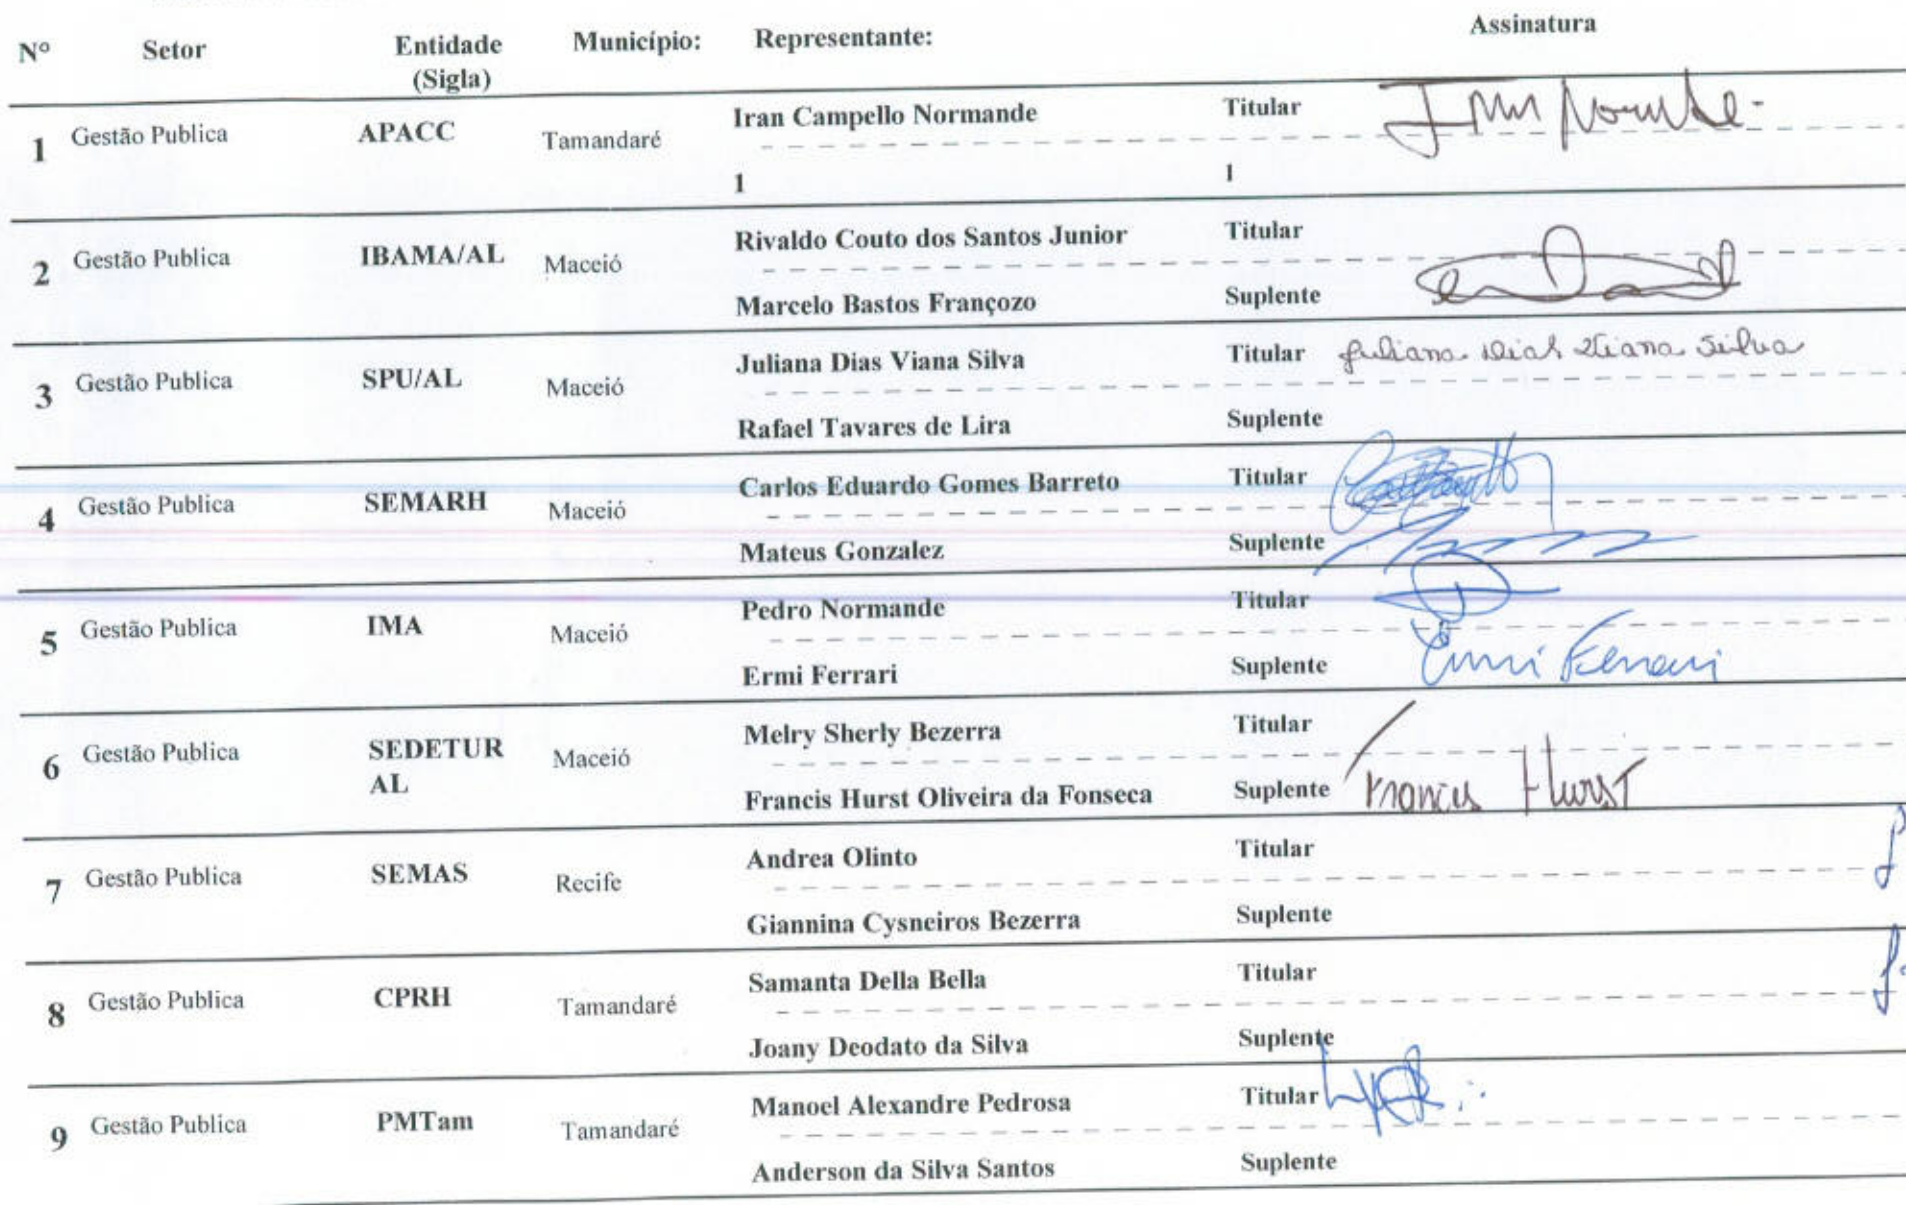 Nº Setor Entidade (Sigla) Município: Representante: Assinatura
1 Gestão Publica APACC Tamandaré Iran Campello Normande Titular
1 1
2 Gestão Publica IBAMA/AL Maceió Rivaldo Couto dos Santos Junior Titular
Marcelo Bastos Françozo Suplente
3 Gestão Publica SPU/AL Maceió Juliana Dias Viana Silva Titular Juliana Dias Viana Silva
Rafael Tavares de Lira Suplente
4 Gestão Publica SEMARH Maceió Carlos Eduardo Gomes Barreto Titular
Mateus Gonzalez Suplente
5 Gestão Publica IMA Maceió Pedro Normande Titular
Ermi Ferrari Suplente Ermi Ferrari
6 Gestão Publica SEDETUR AL Maceió Melry Sherly Bezerra Titular
Francis Hurst Oliveira da Fonseca Suplente Francis Hurst
7 Gestão Publica SEMAS Recife Andrea Olinto Titular
Giannina Cysneiros Bezerra Suplente
8 Gestão Publica CPRH Tamandaré Samanta Della Bella Titular
Joany Deodato da Silva Suplente
9 Gestão Publica PMTam Tamandaré Manoel Alexandre Pedrosa Titular
Anderson da Silva Santos Suplente